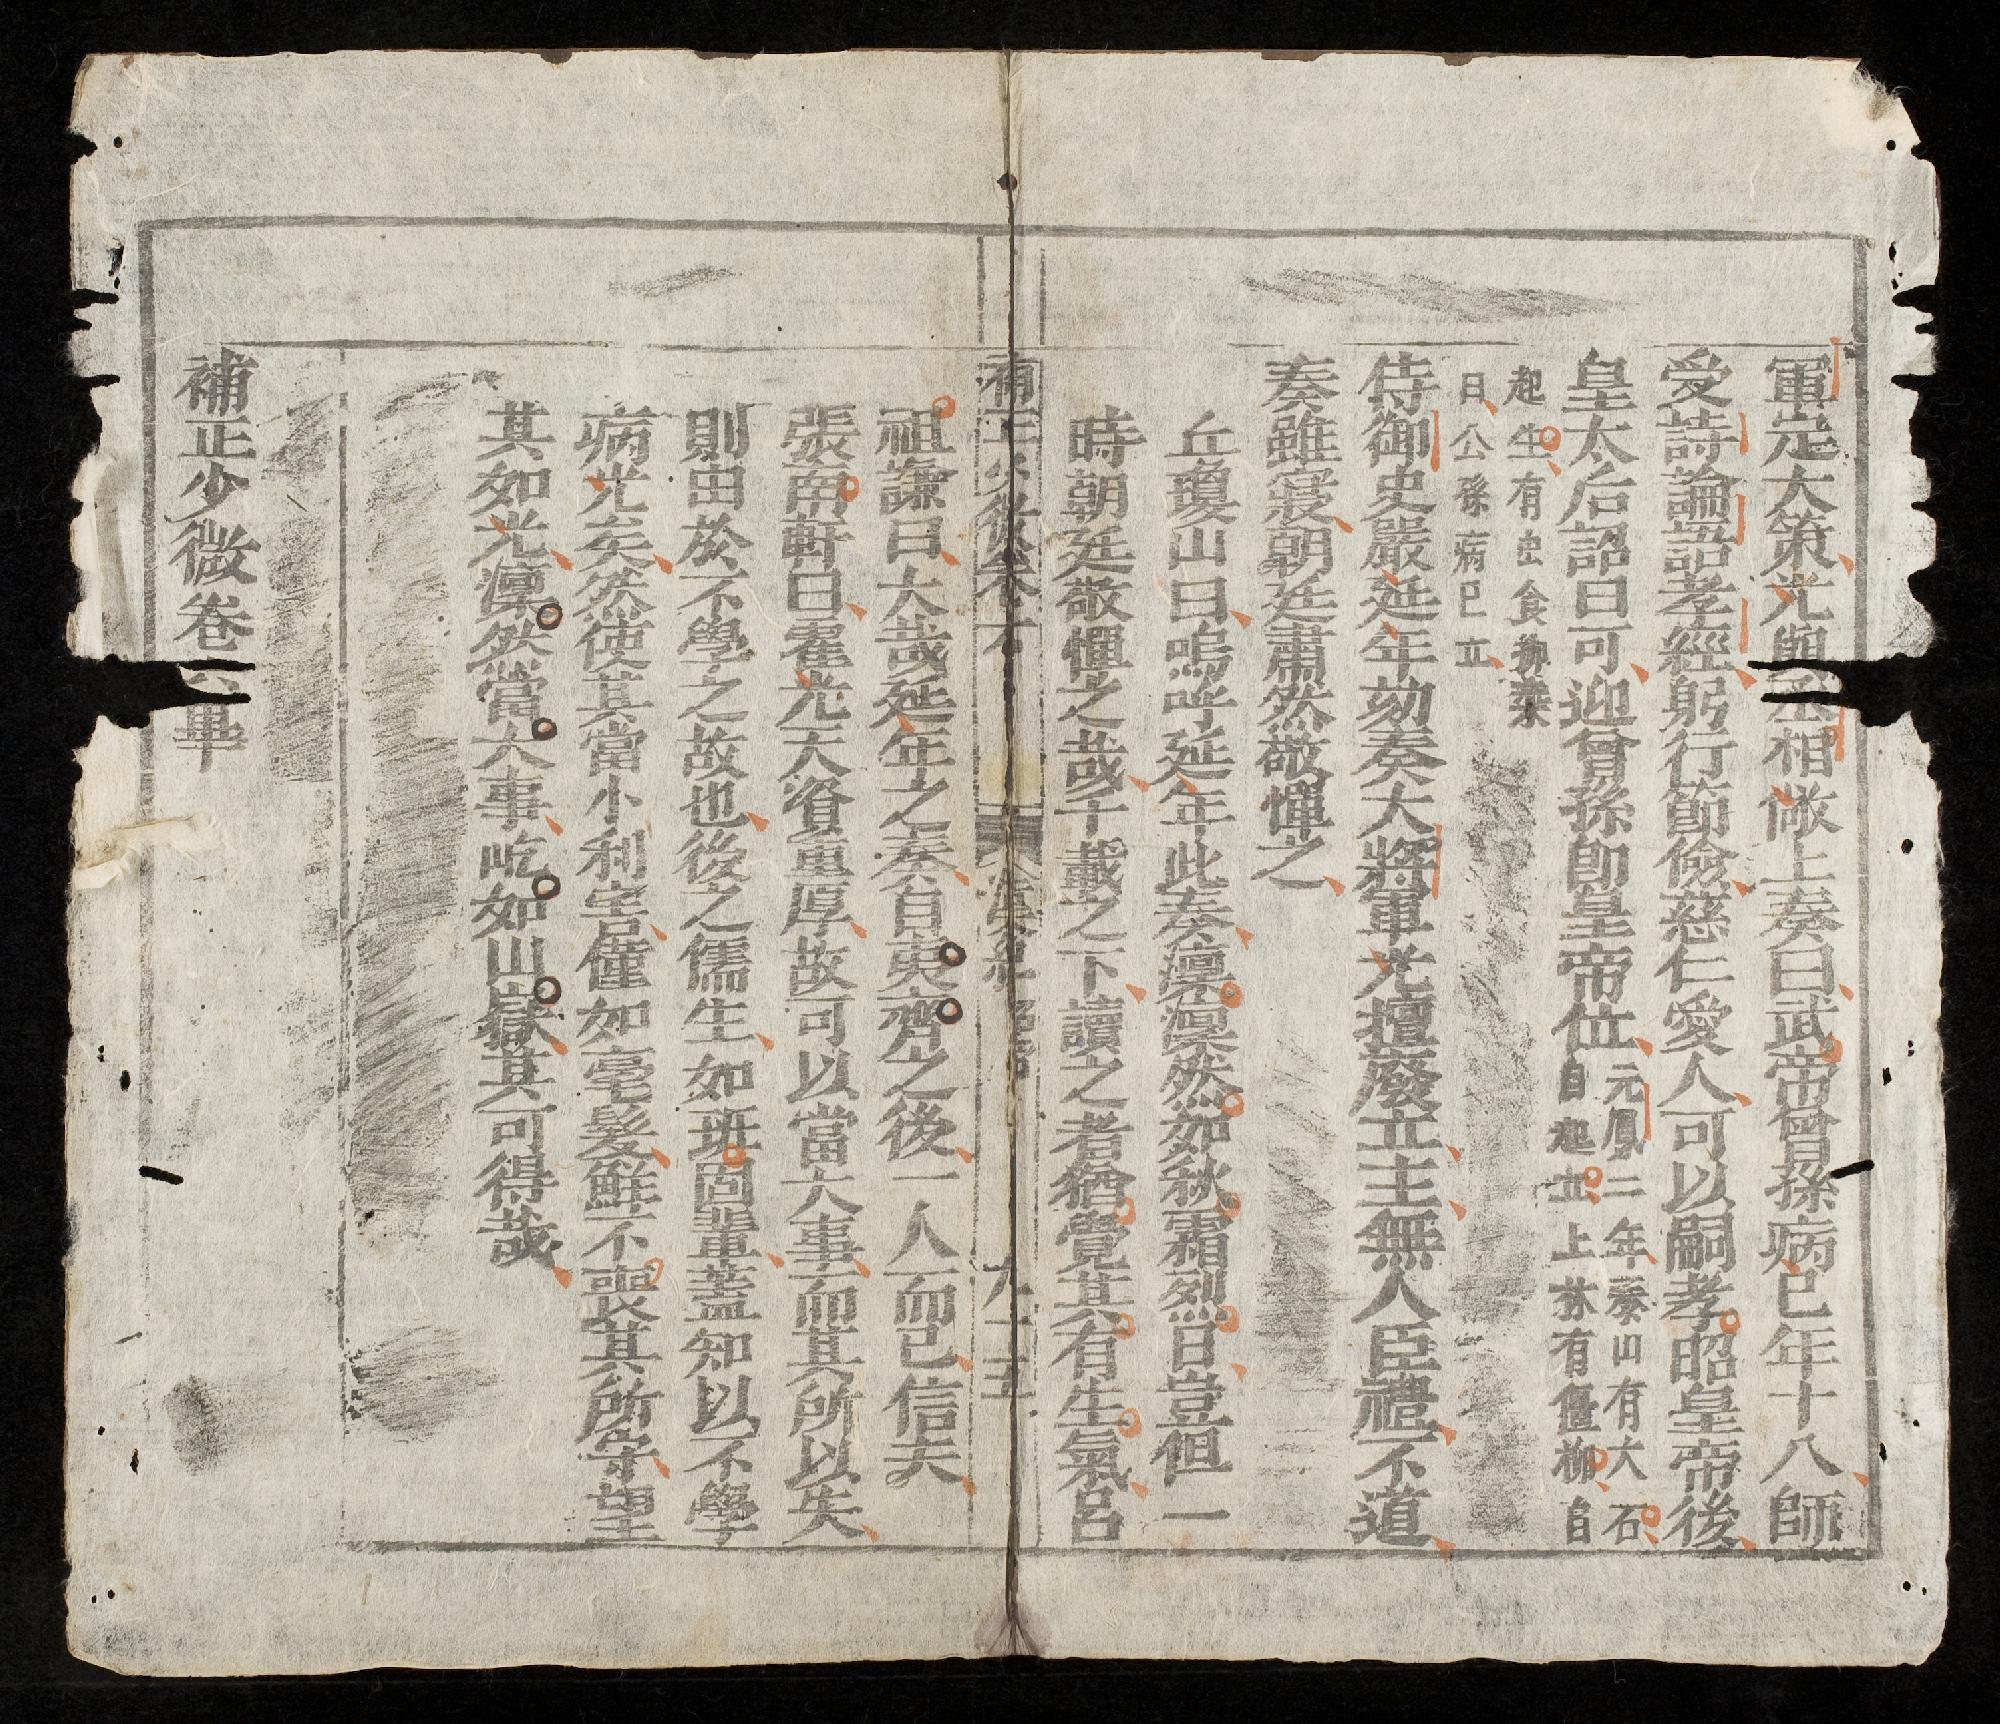 軍定大策光與丞相敞上奏曰武帝曾孫病已年十八師
受詩論語孝經躬行節儉慈仁愛人可以嗣孝昭皇帝後
皇太后詔曰可迎曾孫卽皇帝位
元鳳二年泰山有大石
自起立上林有僵柳自
起生有虫食柳葉
曰公孫病已立
侍御史嚴延年劾奏大將軍光擅廢立主無人臣禮不道
奏雖寢朝廷肅然敬憚之
丘瓊山曰嗚呼延年此奏凛凛然如秋霜烈日豈但一
時朝廷敬憚之哉千載之下讀之者猶覺其有生氣呂
補正少微卷六
漢紀 昭帝
九二五
祖謙曰大哉延年之奏自夷齊之後一人而已信夫
張南軒曰霍光天資重厚故可以當大事而其所以失
則由於不學之故也後之儒生如班固輩蓋知以不學
病光矣然使其當小利害僅如毫髮鮮不喪其所守望
其如光凛然當大事屹如山嶽其可得哉
補正少微卷六畢